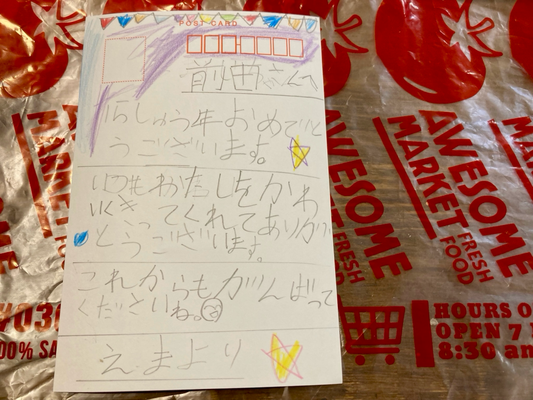 POST CARD
前田さんへ
15しゅう年おめでと
うございます。
いつもわたしをかわ
いくきってくれてありが
とうございます。
これからもがんばって
くださいね。
えまより
AWESOME
MARKET
FRESH
FOOD
AWESOME
MARKET
FRESH
FOOD
HOURS O
OPEN 7
8:30 am
00% SA